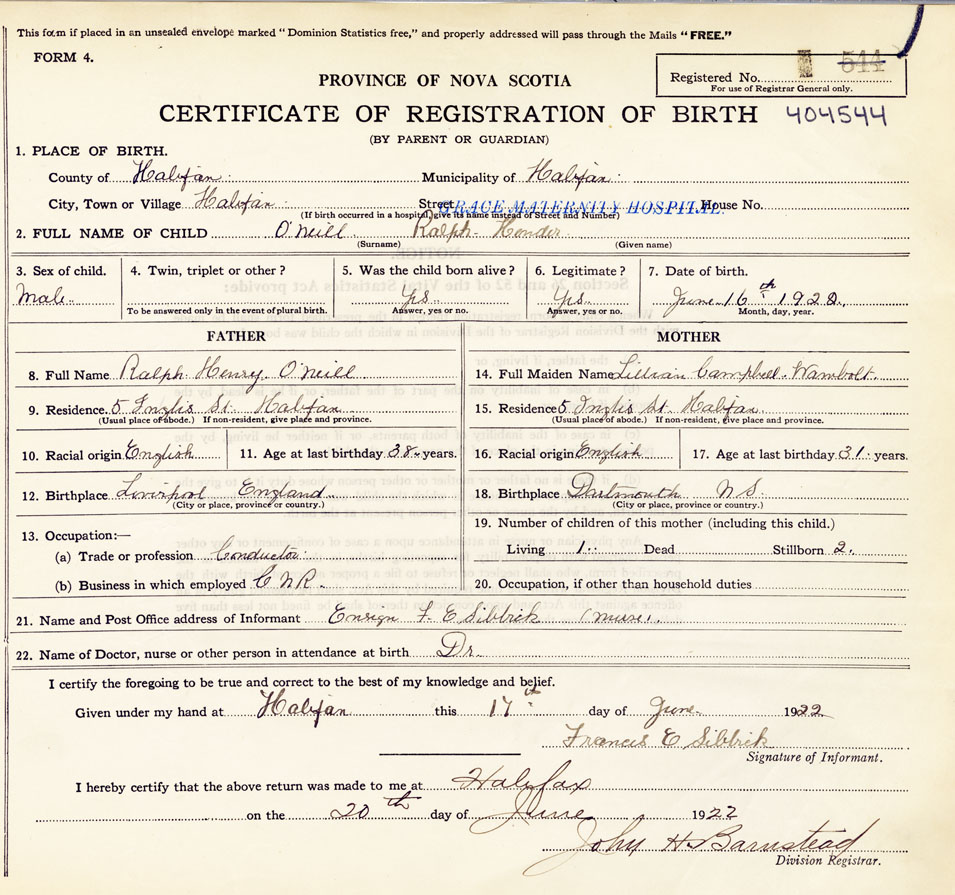 This form if placed in an unsealed envelope marked "Dominion Statistics free," and properly addressed will pass through the Mails "FREE."
FORM 4.
PROVINCE OF NOVA SCOTIA
Registered No. 544
For use of Registrar General only.
CERTIFICATE OF REGISTRATION OF BIRTH 404544
(BY PARENT OR GUARDIAN)
1. PLACE OF BIRTH.
County of Halifax Municipality of Halifax
City, Town or Village Halifax Street GRACE MATERNITY HOSPITAL. House No.
(If birth occurred in a hospital, give its name instead of Street and Number)
2. FULL NAME OF CHILD O'Neill Ralph
(Surname) (Given name)
3. Sex of child. 4. Twin, triplet or other? 5. Was the child born alive? 6. Legitimate? 7. Date of birth.
Male. Yes Yes June 16th 192
To be answered only in the event of plural birth. Answer, yes or no. Answer, yes or no. Month, day, year.
FATHER MOTHER
8. Full Name Ralph Henry O'Neill 14. Full Maiden Name Lillian Campbell Wambolt.
9. Residence. 5 Inglis St. Halifax 15. Residence 5 Inglis St. Halifax.
(Usual place of abode.) If non-resident, give place and province. (Usual place of abode.) If non-resident, give place and province.
10. Racial origin English 11. Age at last birthday 38 years. 16. Racial origin English 17. Age at last birthday 31 years.
12. Birthplace Liverpool England 18. Birthplace Dartmouth N S.
(City or place, province or country.) (City or place, province or country.)
13. Occupation:— 19. Number of children of this mother (including this child.)
(a) Trade or profession Conductor Living 1 Dead Stillborn 2.
(b) Business in which employed C N R. 20. Occupation, if other than household duties
21. Name and Post Office address of Informant Ensign F. E Sibbrick (nurse).
22. Name of Doctor, nurse or other person in attendance at birth Dr.
I certify the foregoing to be true and correct to the best of my knowledge and belief.
Given under my hand at Halifax this 17th day of June 1922
Francis E Sibbrick
Signature of Informant.
I hereby certify that the above return was made to me at Halifax
on the 20th day of June 1922
John H Barnstead
Division Registrar.